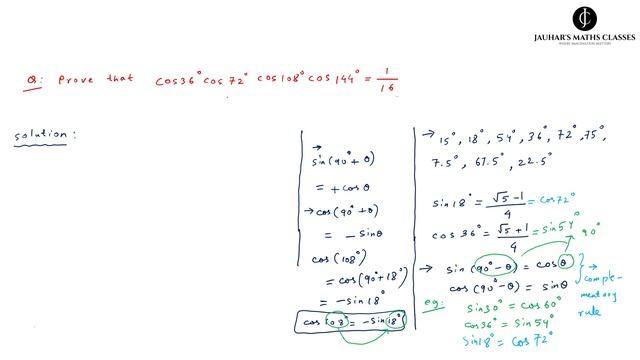 JAUHAR'S MATHS CLASSES
WHERE IMAGINATION MATTERS
Q: Prove that cos36° cos72° cos108° cos144° = 1/16
Solution:
→
sin(90°+θ)
= +cosθ
→ cos(90°+θ)
= -sinθ
cos(108°)
= cos(90°+18°)
= -sin18°
cos108° = -sin18°
→ 15°, 18°, 54°, 36°, 72°, 75°,
7.5°, 67.5°, 22.5°
sin18° = (√5-1)/4 = cos72°
cos36° = (√5+1)/4 = sin54°
90°
→ sin(90°-θ) = cosθ
cos(90°-θ) = sinθ
→ complementary
rule
eg: sin30° = cos60°
cos36° = sin54°
sin18° = cos72°